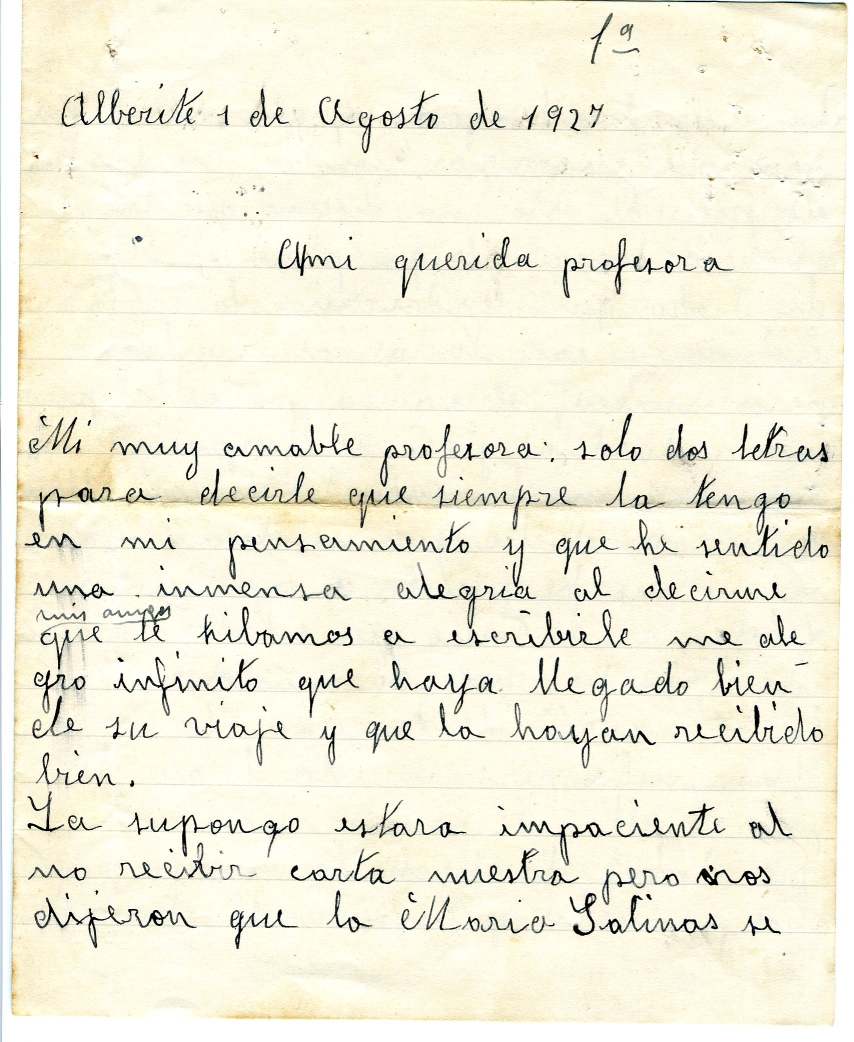 1ª
Alberite 1 de Agosto de 1927
Ami querida profesora
Mi muy amable profesora: solo dos letras
para decirle que siempre la tengo
en mi pensamiento y que he sentido
una inmensa alegria al decirme
mis amigas
que te hibamos a escribirle me ale
gro infinito que haya llegado bien
de su viaje y que la hayan recibido
bien.
La supongo estara impaciente al
no recibir carta nuestra pero nos
dijeron que la Maria Salinas se